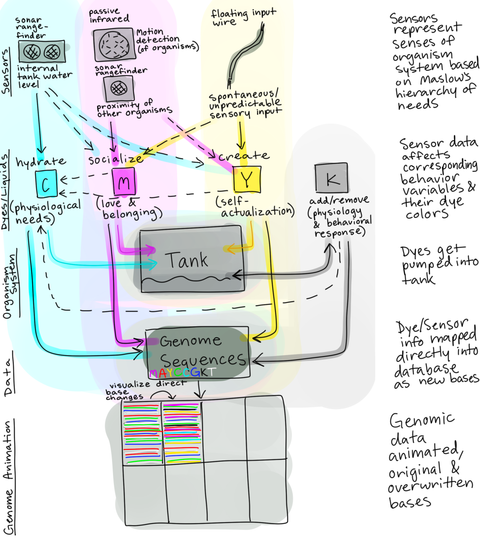 sonar
range-
finder
internal
tank water
level
passive
infrared
Motion
detection
(of organisms)
sonar
rangefinder
proximity of
other organisms
floating input
wire
spontaneous/
unpredictable
sensory input
Sensors
Sensors
represent
senses of
organism
system based
on Maslow's
hierarchy of
needs
hydrate
C
(physiological
needs)
socialize
M
(love &
belonging)
create
Y
(self-
actualization)
K
add/remove
(physiology
& behavioral
response)
Dyes/Liquids
Sensor data
affects
corresponding
behavior
variables &
their dye
colors
Tank
Organism
System
Dyes get
pumped into
tank
Genome
Sequences
Data
Dye/Sensor
info mapped
directly into
database
as new bases
visualize direct
base
changes
Genome Animation
Genomic
data
animated,
original &
overwritten
bases